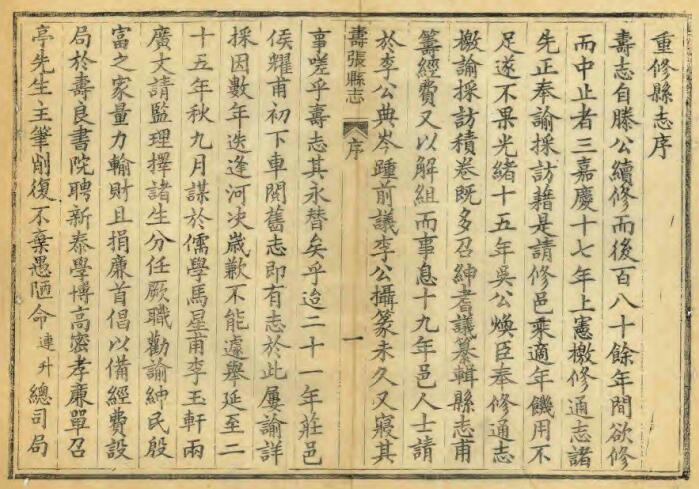 重修縣志序
壽志自滕公續修而後百八十餘年間欲修
而中止者三嘉慶十七年上憲檄修通志諸
先正奉諭採訪藉是請修邑乘適年饑用不
足遂不果光緒十五年吳公煥臣奉修通志
檄諭採訪積卷既多召紳耆議纂輯縣志甫
籌經費又以解組而事息十九年邑人士請
於李公典岑踵前議李公攝篆未久又寢其
壽張縣志
序
一
事嗟乎壽志其永替矣乎迨二十一年莊邑
侯耀甫初下車閱舊志即有志於此屢諭詳
採因數年迭逢河决歲歉不能遽舉延至二
十五年秋九月謀於儒學馬星甫李玉軒兩
廣文請監理擇諸生分任厥職勸諭紳民殷
富之家量力輸財且捐廉首倡以備經費設
局於壽良書院聘新泰學博高密孝廉單召
亭先生主筆削復不棄愚陋命連升總司局